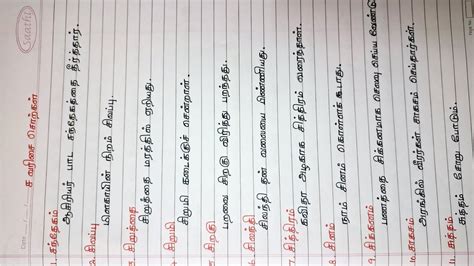 saathi
Date
ச வரிசை சொற்கள்
1. சந்தேகம்
ஆசிரியர் பாட சந்தேகத்தை தீர்த்தார்.
2. சிவப்பு
மிளகாயின் நிறம் சிவப்பு.
3. சிறுத்தை
சிறுத்தை மரத்தில் ஏறியது.
4. சிறுமி
சிறுமி கடைக்குச் சென்றாள்.
5. சிறகு
பறவை சிறகு விரித்து பறந்தது.
6. சிலந்தி
சிலந்தி தன் வலையை பின்னியது.
7. சித்திரம்
கவிதா அழகாக சித்திரம் வரைந்தாள்.
8. சினம்
நாம் சினம் கொள்ளக் கூடாது.
9. சிக்கனம்
பணத்தை சிக்கனமாக செலவு செய்ய வேண்டும்
10. சாகசம்
அரங்கில் வீரர்கள் சாகசம் செய்தார்கள்.
11. சத்தம்
சத்தம் போடும்.